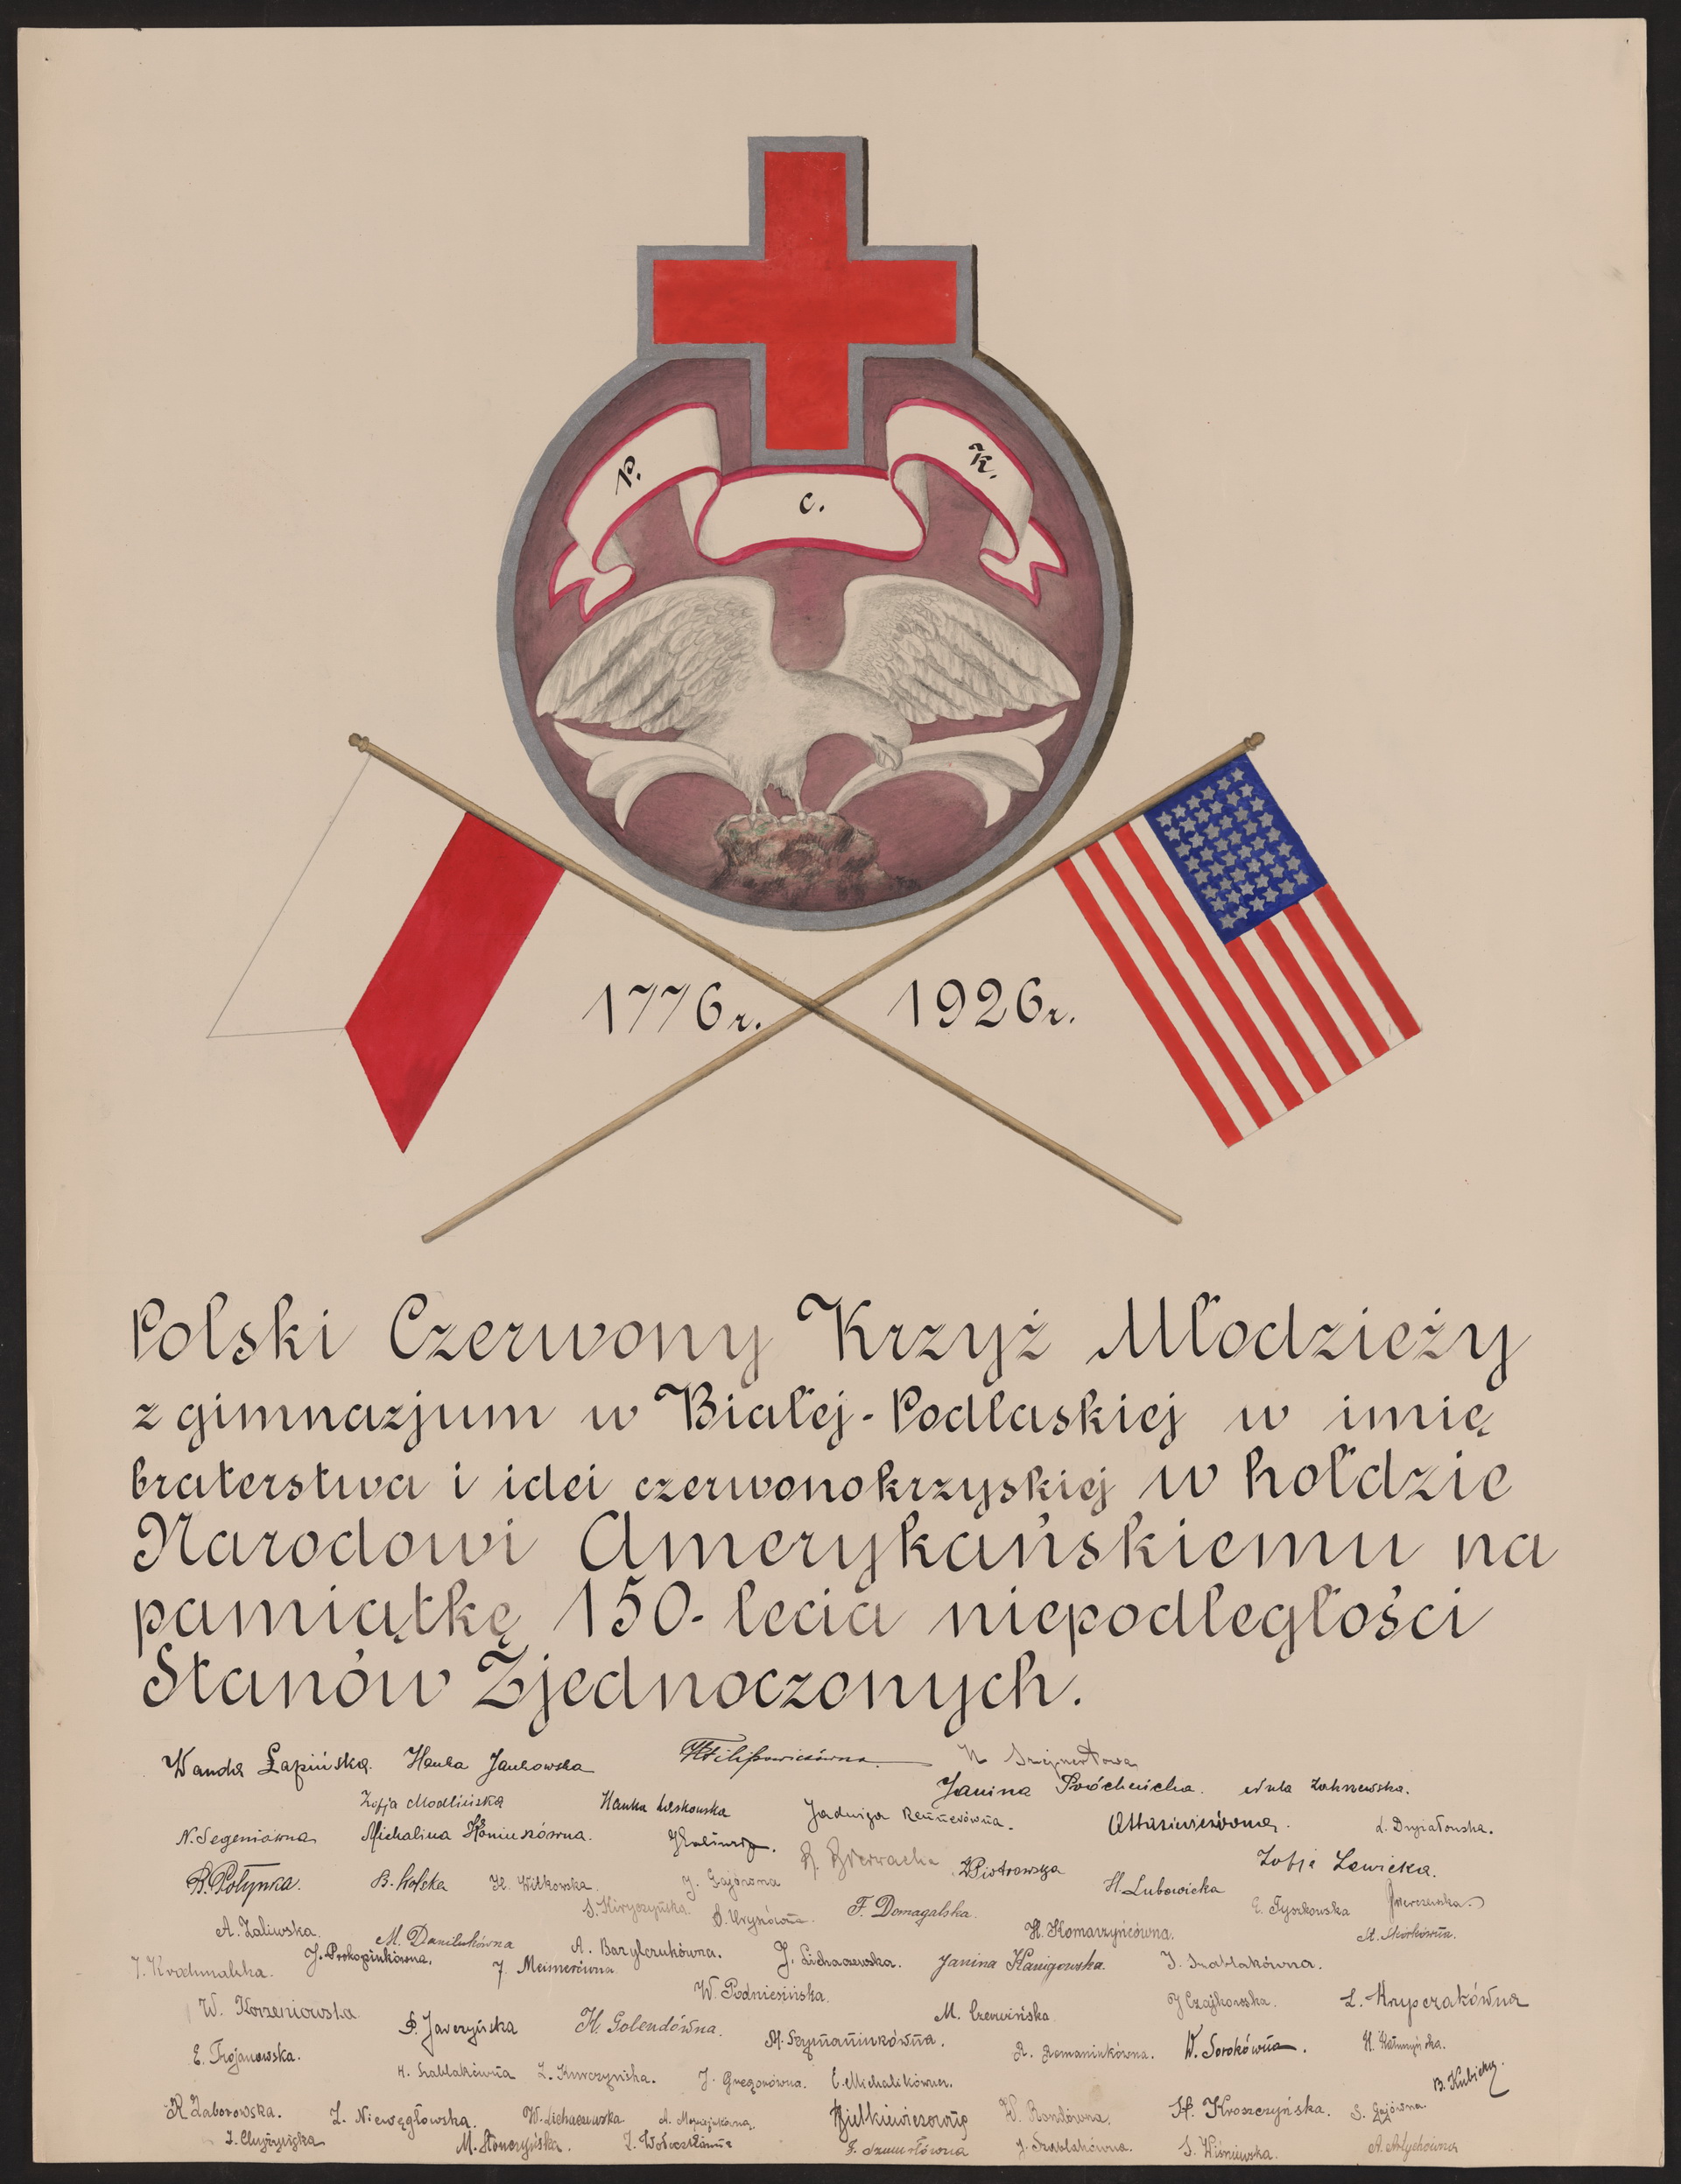 P. C. K.
1776r. 1926r.
Polski Czerwony Krzyż Młodzieży
z gimnazjum w Białej-Podlaskiej w imię
braterstwa i idei czerwonokrzyskiej w hołdzie
Narodowi Amerykańskiemu na
pamiątkę 150-lecia niepodległości
Stanów Zjednoczonych.
Wanda Łapińska. Hanka Jankowska H Filipowiczówna
Janina Próchnicka.
Zofja Modlińska Hanka Laskowska Jadwiga Rennerówna.
N. Segeniówna Michalina Honiukówna.
Zofja Lewicka.
B. Połynka. B. Kolska H. Witkowska J. Gajówna Z Piotrowska H. Lubowicka
S. Kiryszyńska. F. Domagalska. E. Tyszkowska
A. Zaliwska. M. Danilukówna A. Bazylczukówna. H. Komarzyńcówna.
J. Krochmalska. J. Prokopiukówna. J. Meimerówna J. Lichaczewska. Janina Kanigowska. J. Szablakówna.
W. Podniesińska.
W. Korzeniowska P. Jaczyńska H. Golendówna. M. Czerwińska J Czajkowska. L. Krypczakówna
E. Trojanowska. M. Szymaniukówna. R. Romaniukówna. W. Sorokówna.
H. Szablakówna Z. Kurczyńska. J. Gregorówna. E. Michalikówna. B. Kubicka
K Zaborowska. Z. Niewęgłowska. W. Lichaczewska W. Bondówna. H. Kroszczyńska. S. Gajówna
M. Słonczyńska. J. Szablakówna. S. Wiśniewska.